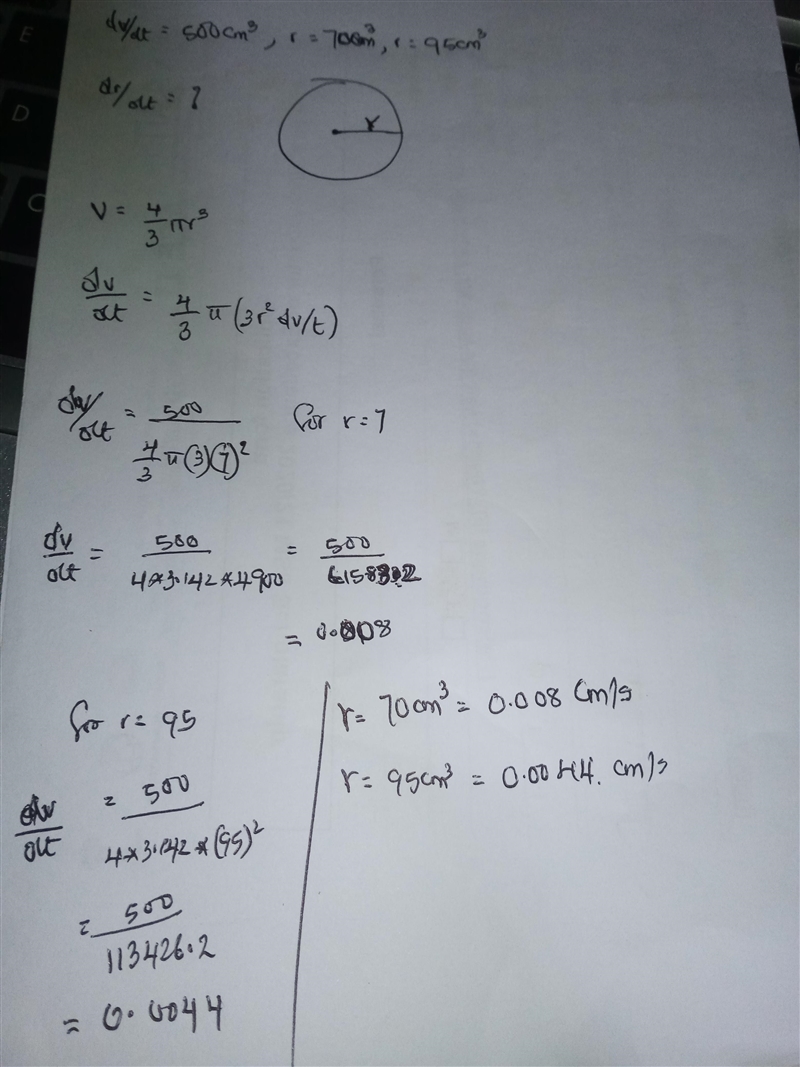 dv/dt = 500cm³, r = 70cm³, r = 95cm³
dr/dt = ?
r
V = 4/3 πr³
dv/dt = 4/3 π(3r² dv/t)
dv/dt = 500 / 4/3 π(3)(7)² for r = 7
dv/dt = 500 / 4×3.142×4900 = 500
= 0.008
for r = 95
dv/dt = 500 / 4×3.142×(95)²
= 500 / 113426.2
= 0.0044
r = 70cm³ = 0.008 cm/s
r = 95cm³ = 0.0044. cm/s
E
D
C